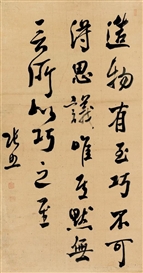 造物有至巧不可
得思議唯其默無
言所以巧之至